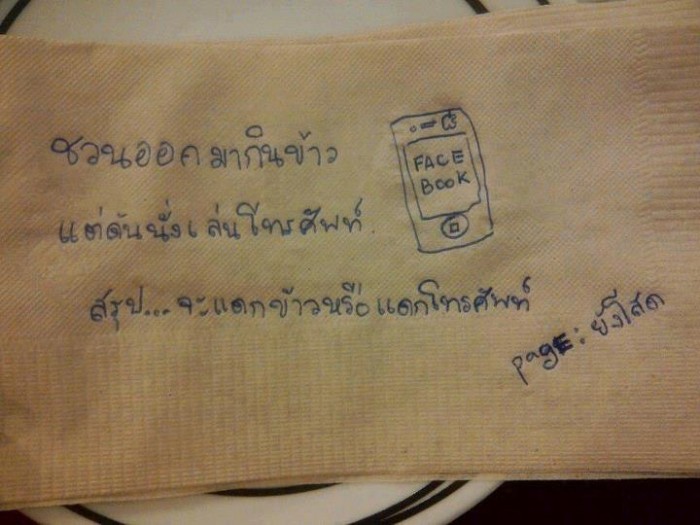 ชวนออกมากินข้าว
FACE
BOOK
แต่ดันนั่งเล่นโทรศัพท์
สรุป... จะแดกข้าวหรือแดกโทรศัพท์
page: ยังโสด